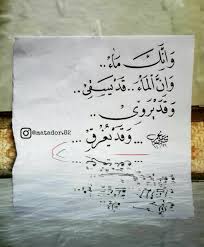 وَإِنَّكَ مَاءٌ..
وَإِنَّ الْمَاءَ.. قَدْ يَسْقِي..
وَقَدْ يَرْوِي..
... وَقَدْ يُغْرِقُ...
@matador.82